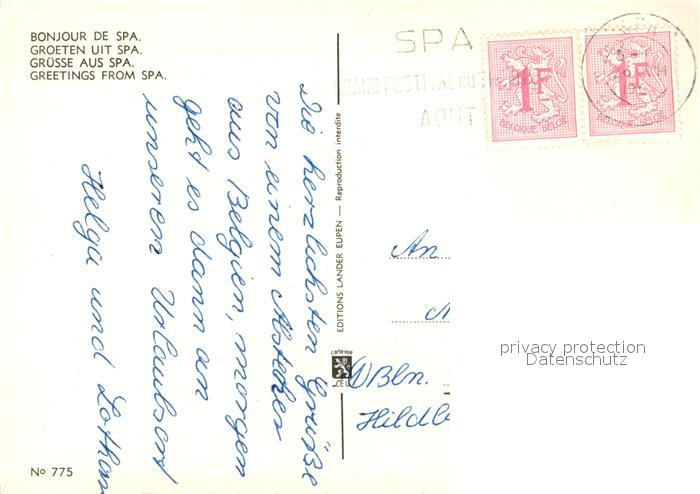 BONJOUR DE SPA.
GROETEN UIT SPA.
GRÜSSE AUS SPA.
GREETINGS FROM SPA.
SPA
FESTIVAL DU
AOUT
1F
BELGIQUE-BELGIË
1F
BELGIQUE-BELGIË
Die herzlichsten Grüße
von einem Abstecher
aus Belgien, morgen
geht es dann an
unseren Urlaubsort
Helga und Lothar
EDITIONS LANDER EUPEN — Reproduction interdite
carte vue
An
1) Bln.
Hildb
privacy protection
Datenschutz
No 775